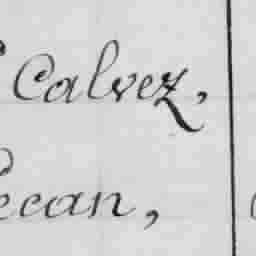 Calvez,
ecan,